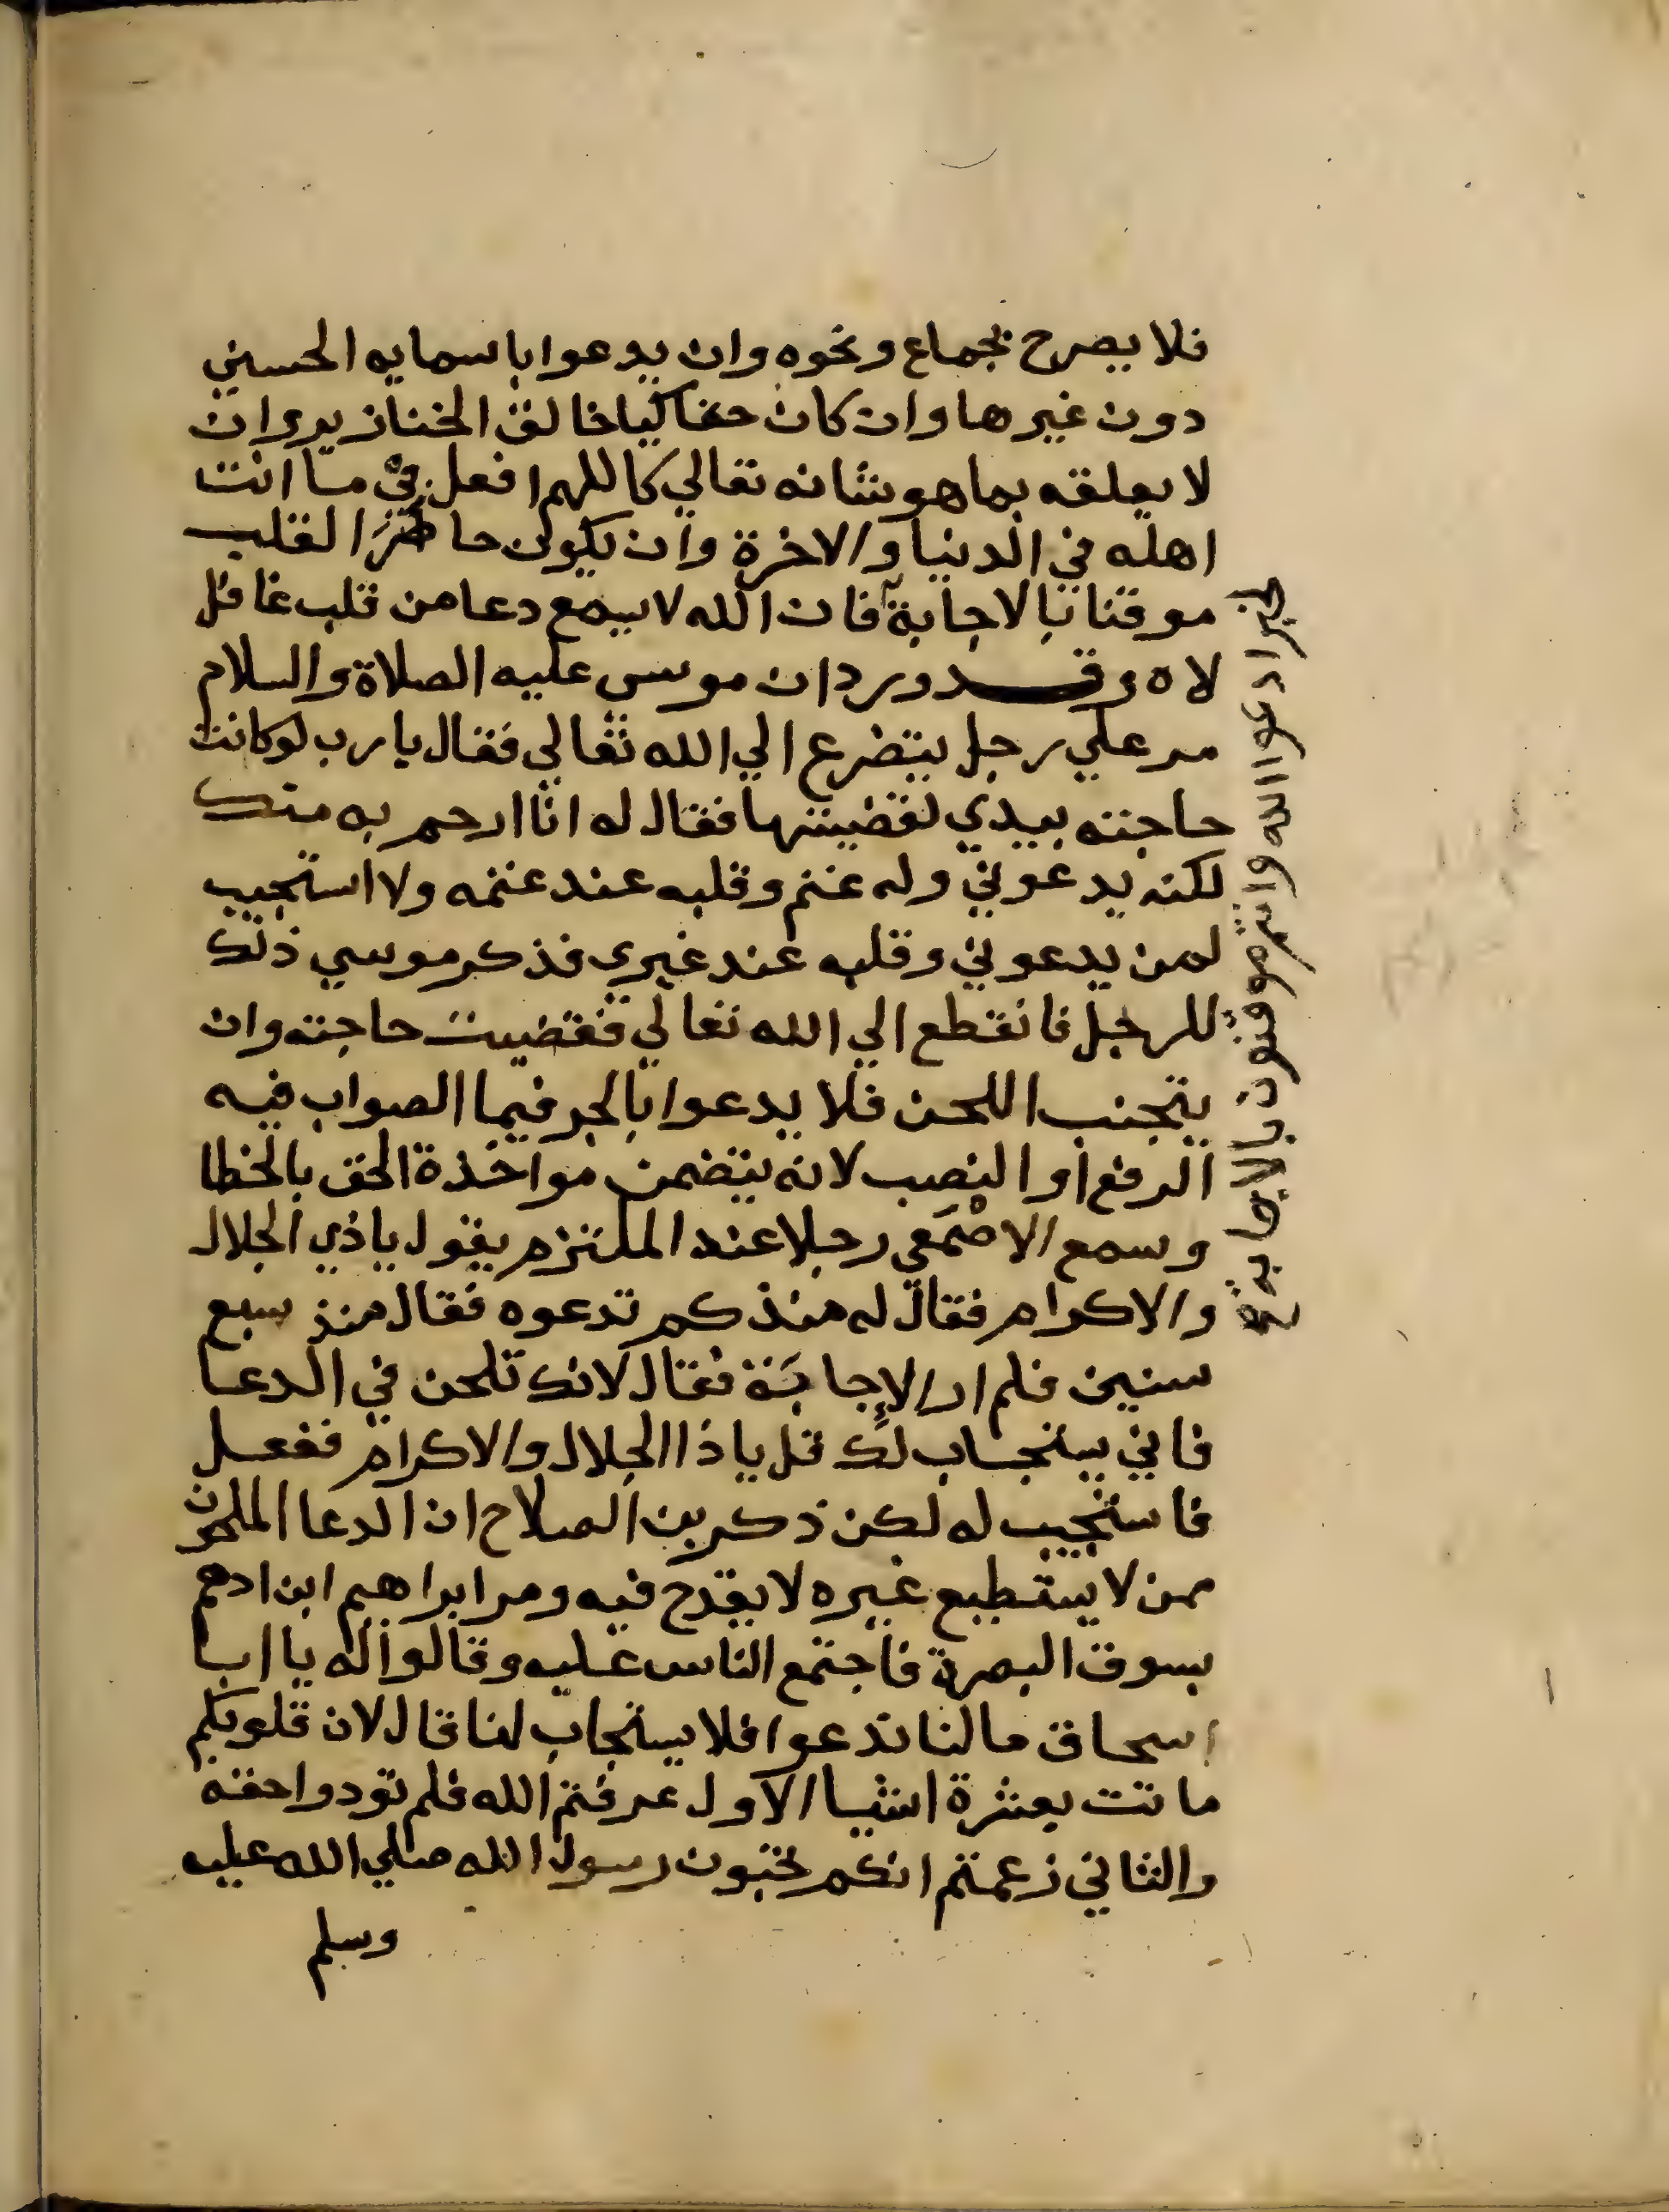 فلا يصرح بجماع ونحوه وان يدعوا باسمايه الحسني
دون غيرها وان كان حقا كيا خالق الخنازير وان
لا يعلقه بما هو شانه تعالي كاللهم افعل بي ما انت
اهله في الدنيا والاخرة وان يكون حاضر القلب
موقنا بالاجابة فان الله لا يسمع دعا من قلب غافل
لاه وقد ورد ان موسي عليه الصلاة والسلام
مر علي رجل يتضرع الي الله تعالي فقال يا رب لو كانت
حاجته بيدي لقضيتها فقال له انا ارحم به منك
لكنه يدعوني وله غنم وقلبه عند غنمه ولا استجيب
لمن يدعوني وقلبه عند غيري فذكر موسي ذلك
للرجل فانقطع الي الله تعالي فقضيت حاجته وان
يتجنب اللحن فلا يدعوا بالجر فيما الصواب فيه
الرفع او النصب لانه يتضمن مواخذة الحق بالخطا
وسمع الاصمعي رجلا عند الملتزم يقول يا ذي الجلال
والاكرام فقال له منذ كم تدعوه فقال منذ سبع
سنين فلم ار الإجابَة فقال لانك تلحن في الدعا
فاني يستجاب لك قل يا ذا الجلال والاكرام ففعل
فاستجيب له لكن ذكر بن الصلاح ان الدعا الملحون
ممن لا يستطيع غيره لا يقدح فيه ومر ابراهيم ابن ادهم
بسوق البصرة فاجتمع الناس عليه وقالوا له يا ابا
اسحاق ما لنا ندعوا فلا يستجاب لنا قال لان قلوبكم
ماتت بعشرة اشيا الاول عرفتم الله فلم تودوا حقه
والثاني زعمتم انكم تحبون رسول الله صلي الله عليه
وسلم
لخبر ادعوا الله وانتم موقنون بالاجابة صح